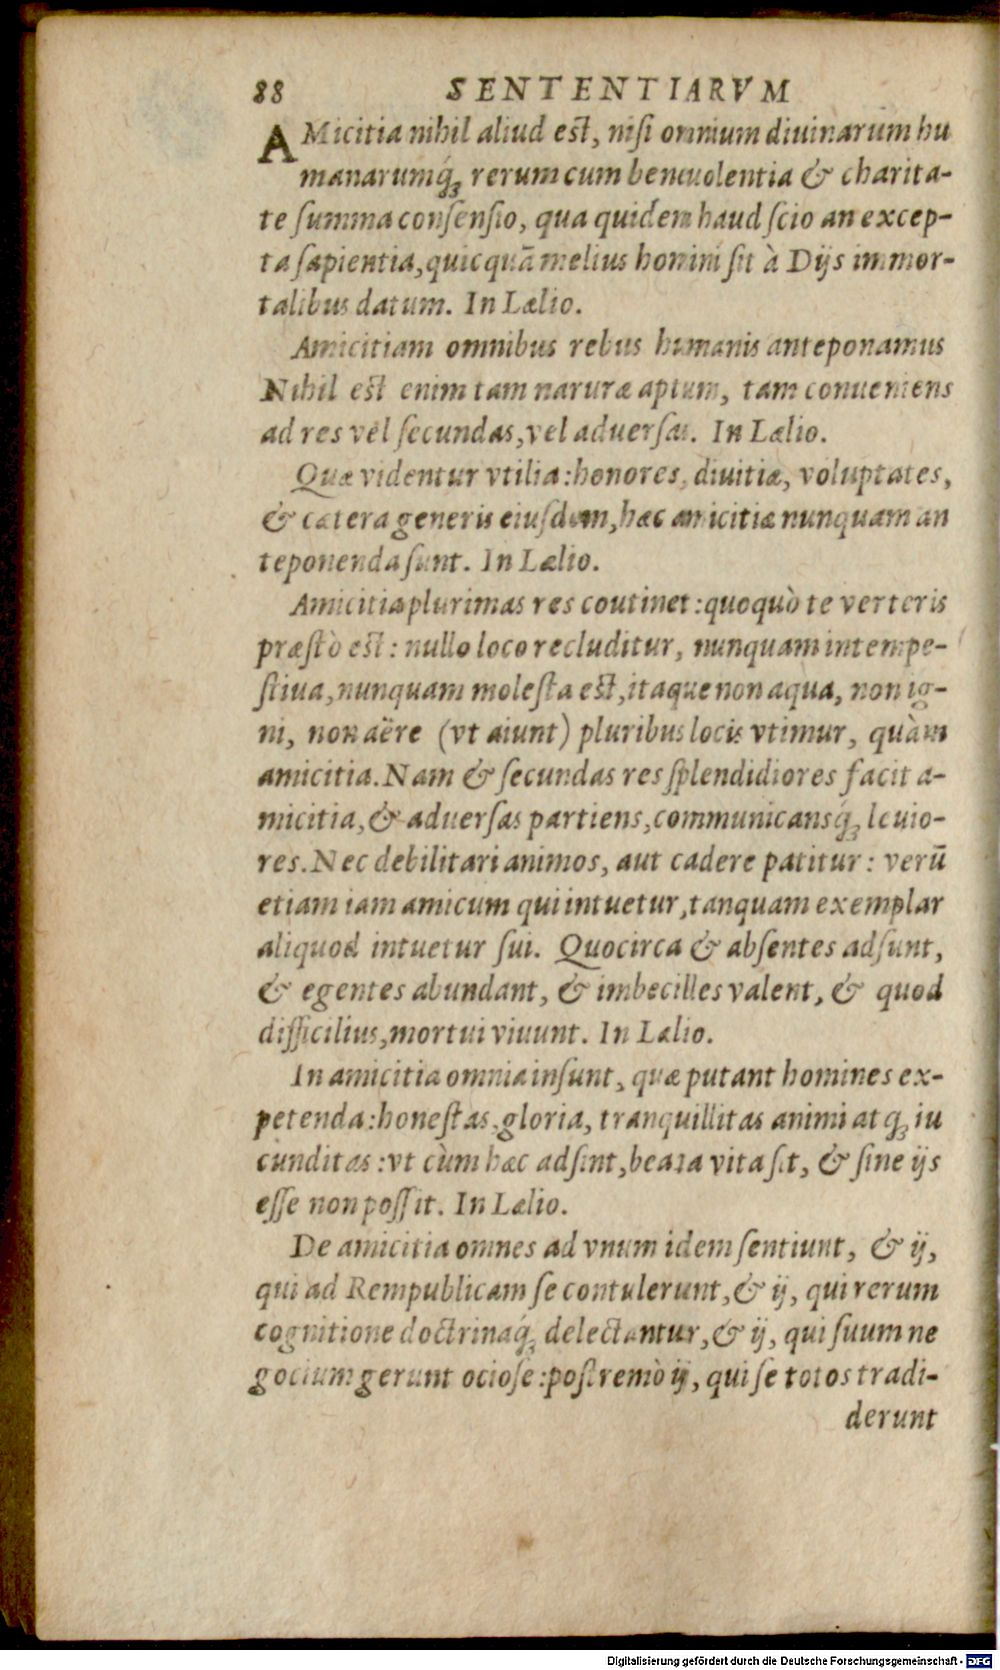 88 SENTENTIARVM
AMicitia nihil aliud est, nisi omnium diuinarum hu
manarumq́; rerum cum beneuolentia & charita-
te summa consensio, qua quidem haud scio an excep-
ta sapientia, quicquā melius homini sit à Dijs immor-
talibus datum. In Lælio.
Amicitiam omnibus rebus humanis anteponamus
Nihil est enim tam naruræ aptum, tam conueniens
ad res vel secundas, vel aduersas. In Lælio.
Quæ videntur vtilia: honores, diuitiæ, voluptates,
& cætera generis eiusdem, hæc amicitiæ nunquam an
teponenda sunt. In Lælio.
Amicitia plurimas res coutinet: quoquò te verteris
præstò est: nullo loco recluditur, nunquam intempe-
stiua, nunquam molesta est, itaque non aqua, non ig-
ni, non aëre (vt aiunt) pluribus locis vtimur, quàm
amicitia. Nam & secundas res splendidiores facit a-
micitia, & aduersas partiens, communicansq́; leuio-
res. Nec debilitari animos, aut cadere patitur: verū
etiam iam amicum qui intuetur, tanquam exemplar
aliquod intuetur sui. Quocirca & absentes adsunt,
& egentes abundant, & imbecilles valent, & quod
difficilius, mortui viuunt. In Lælio.
In amicitia omnia insunt, quæ putant homines ex-
petenda: honestas, gloria, tranquillitas animi atq; iu
cunditas: vt cùm hæc adsint, beata vita sit, & sine ijs
esse non possit. In Lælio.
De amicitia omnes ad vnum idem sentiunt, & ij,
qui ad Rempublicam se contulerunt, & ij, qui rerum
cognitione doctrinaq́; delectantur, & ij, qui suum ne
gocium gerunt ociose: postremò ij, qui se totos tradi-
derunt
Digitalisierung gefördert durch die Deutsche Forschungsgemeinschaft - DFG